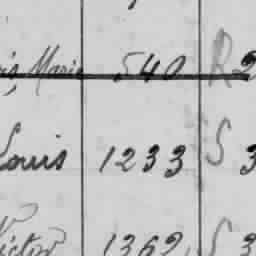 is, Marie 540 R 2
Louis 1233 S 3
Victor 1362 S 3